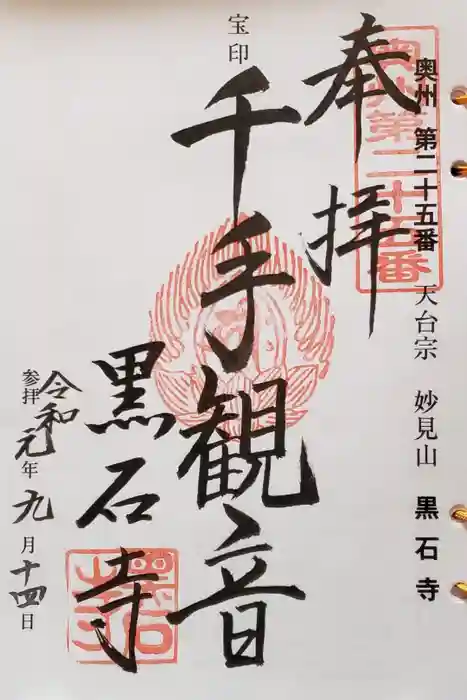 奥州 第二十五番 天台宗 妙見山 黒石寺
奥州第二十五番
奉拝
宝印
千手観音
黒石寺
参拝 令和元年九月十四日